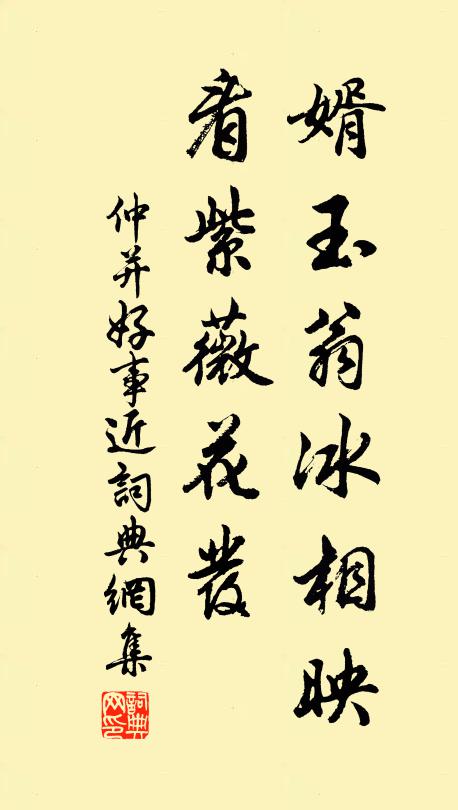 婿玉翁冰相映
看紫薇花發
仲并好事近詞典網集
詞典網印